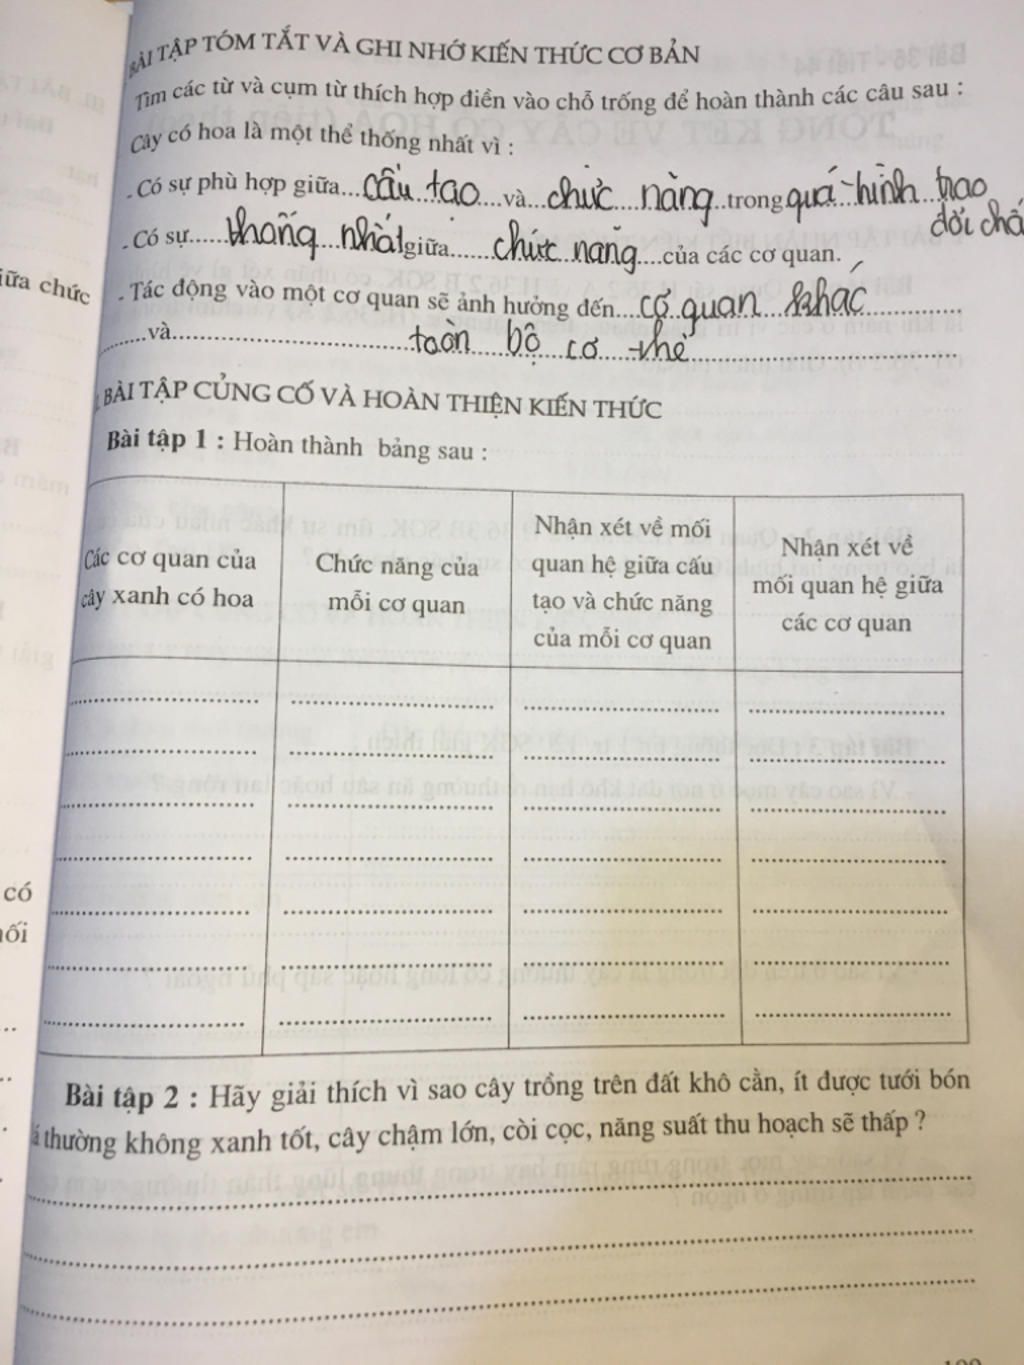 BÀI TẬP TÓM TẮT VÀ GHI NHỚ KIẾN THỨC CƠ BẢN
Tìm các từ và cụm từ thích hợp điền vào chỗ trống để hoàn thành các câu sau :
Cây có hoa là một thể thống nhất vì :
- Có sự phù hợp giữa...cấu tạo...và...chức năng...trong quá hình trao
đổi chấ
- Có sự...thống nhất giữa...chức năng...của các cơ quan.
iữa chức
- Tác động vào một cơ quan sẽ ảnh hưởng đến...cơ quan khác...
...và...toàn bộ cơ thể...
BÀI TẬP CỦNG CỐ VÀ HOÀN THIỆN KIẾN THỨC
Bài tập 1 : Hoàn thành bảng sau :
Các cơ quan của
cây xanh có hoa
Chức năng của
mỗi cơ quan
Nhận xét về mối
quan hệ giữa cấu
tạo và chức năng
của mỗi cơ quan
Nhận xét về
mối quan hệ giữa
các cơ quan
có
ối
Bài tập 2 : Hãy giải thích vì sao cây trồng trên đất khô cằn, ít được tưới bón
lá thường không xanh tốt, cây chậm lớn, còi cọc, năng suất thu hoạch sẽ thấp ?